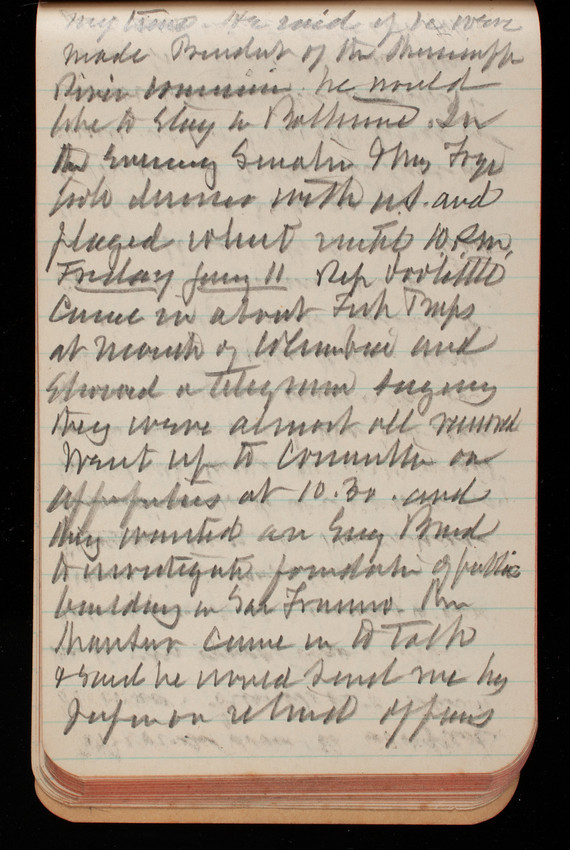 my time. He said if he were
made President of the Mississippi
River Commission he would
like to stay in Baltimore. In
the Evening Senator & Mrs Frye
took dinner with us. and
played whist until 10 P.m.
Friday Jany 11 Rep Doolittle
Came in about Fish Traps
at mouth of Columbia and
Showed a telegram saying
they were almost all removed
Went up to Committee on
Appropriations at 10.30. and
they wanted an Eng Board
to investigate foundation of public
building in San Francisco.
Mansur Came in to talk
& said he would send me his
on retired officers